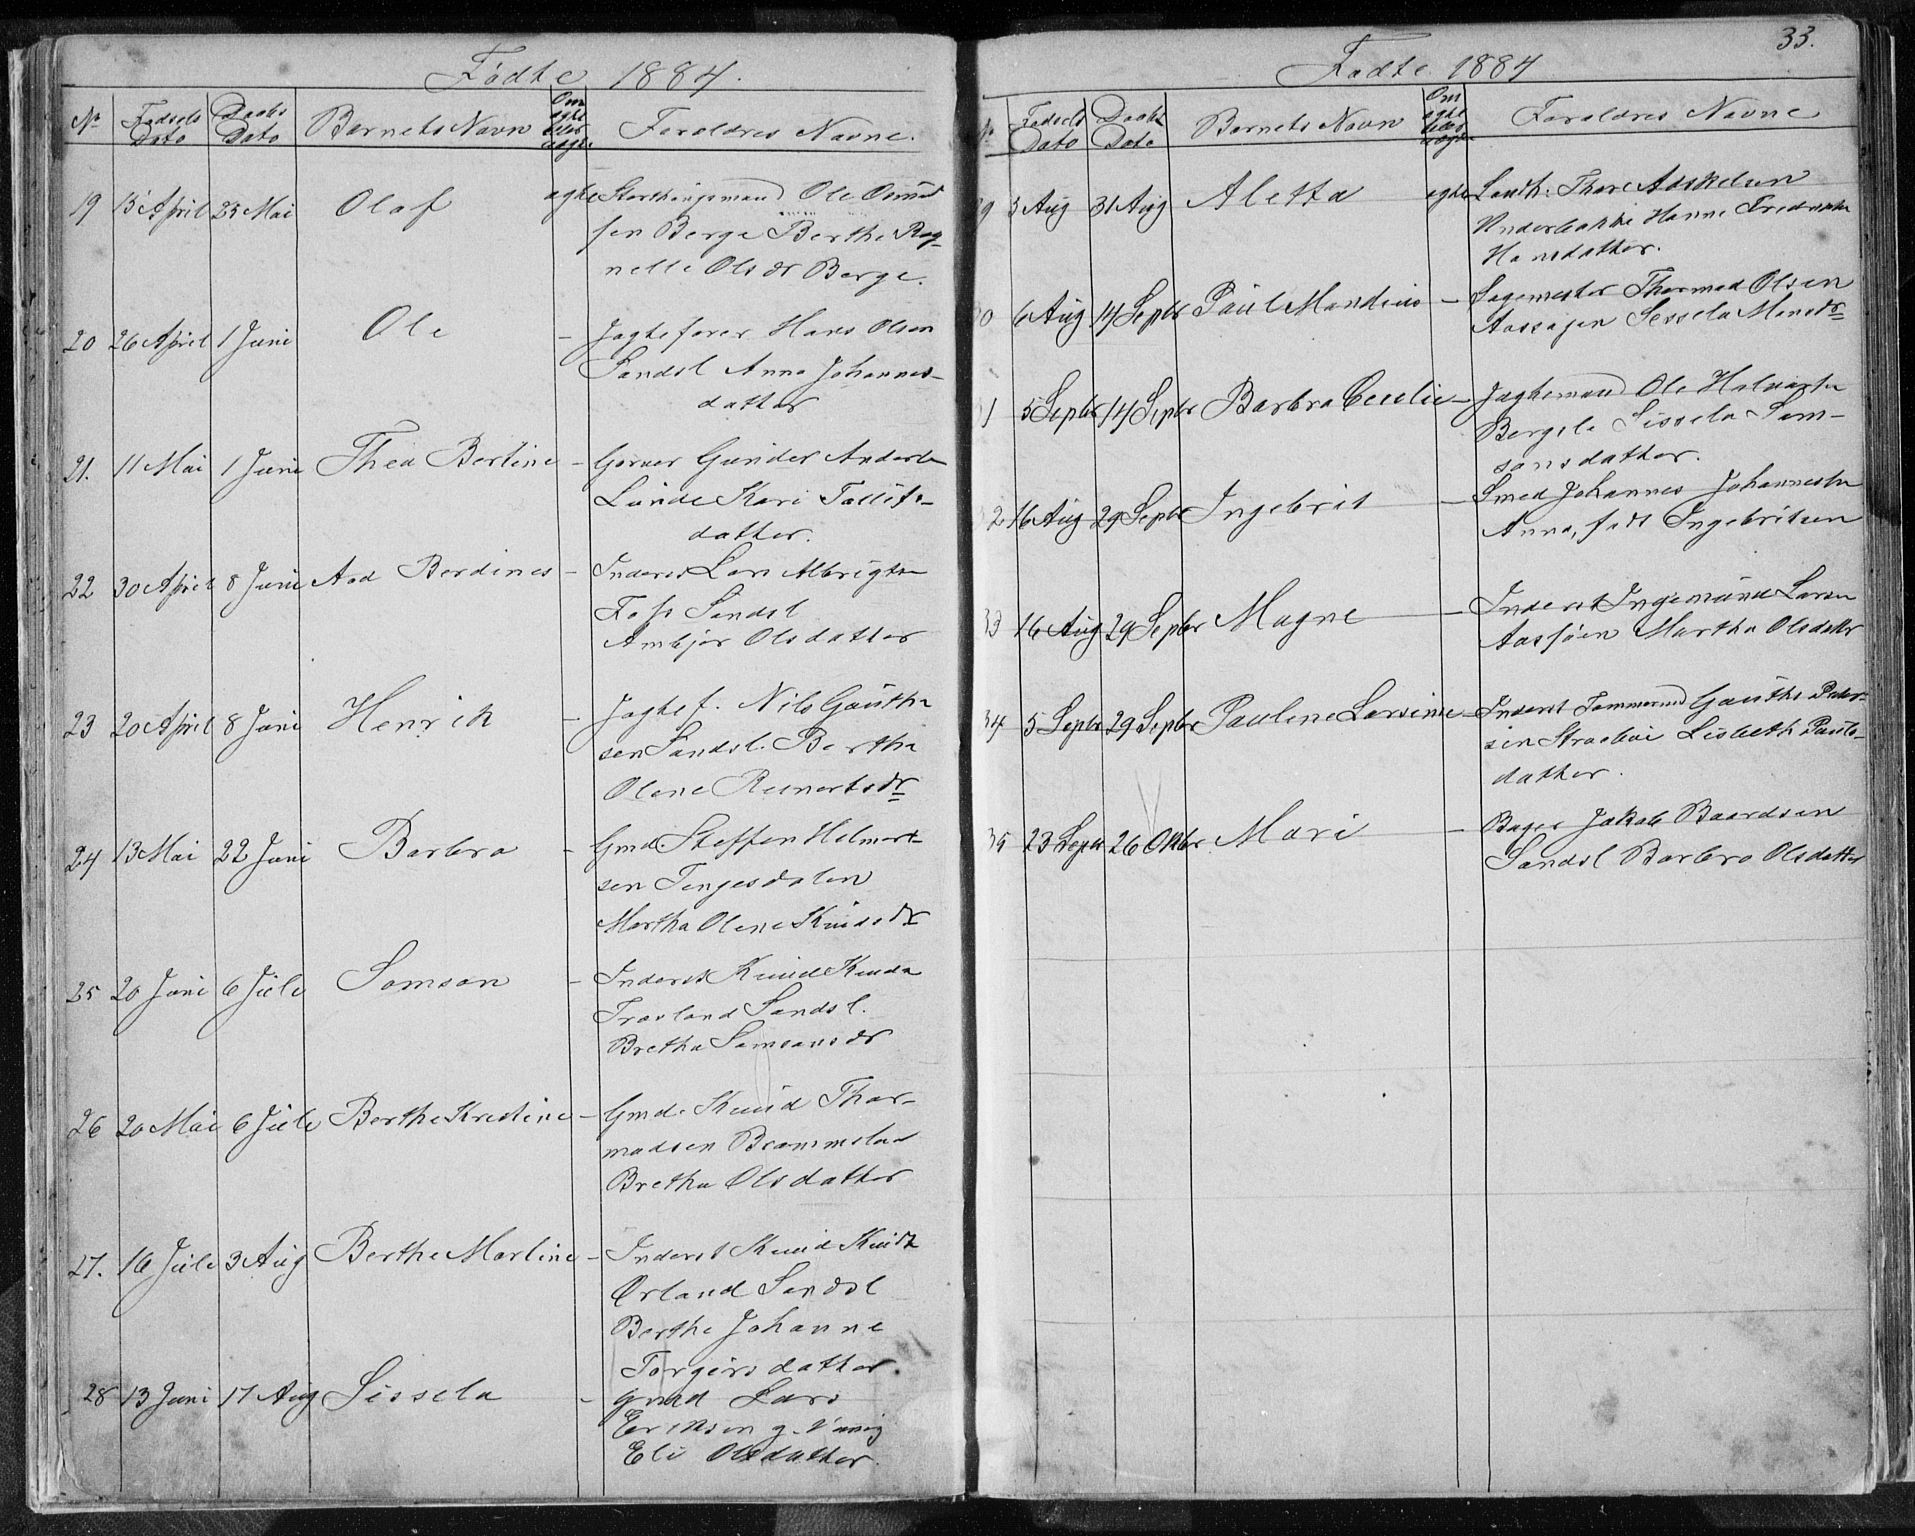 Fødte 1884.
No Fødsels Dato Daabs Dato Barnets Navn Om ægte eller uægte Forældres Navne.
19 15 April 25 Mai Olaf ægte Storthingsmand Ole Omund
sen Berge Berthe Rag-
nelle Ols dr Berge.
20 26 April 1 Juni Ole - Jagtefører Hans Olsen
Sandsl Anna Johannes-
datter
21. 11 Mai 1 Juni Thea Bertine - Garver Gunder Anders
Lunde Kari Tollifs-
datter.
22 30 April 8 Juni Aad Berdines - Inderst Lars Albrigts
Foss Sandsl
Anbjør Olsdatter
23 20 April 8 Juni Henrik - Jagtef. Nils Gauth
sen Sandsl. Bertha
Olene Reinerts dr
24 13 Mai 22 Juni Barbro - Gmd. Steffen Helmert-
sen Tengesdalen
Martha Olene Knuds dr
25 20 Juni 6 Juli Samson - Inderst Knud Knuds
Travland Sandsl.
Bretha Samsons dr
26 20 Mai 6 Juli Berthe Kristine - Gmd. Knud Thor-
madsen Brommeland
Bretha Olsdatter
27. 16 Juli 3 Aug Berthe Martine - Inderst Knud Knuds
Ørland Sandsl
Berthe Johanne
Torgersdatter.
28 13 Juni 17 Aug Sissela - Gmd Lars
Eriksen g. Vanig
Eli Olsdatter.
33.
Fødte 1884
No Fødsels Dato Daabs Dato Barnets Navn Om ægte eller uægte Forældres Navne
29 3 Aug 31 Aug Aletta ægte Landh. Thore Adskelsen
Underbakke Hanne Fredrikke
Hansdatter.
30 6 Aug 14 Septbr Paul Mandius - Sagemester Thormod Olsen
Aassagen Sessela Mons dr
31 5 Septbr 14 Septbr Barbra Cecelie - Jagtemand Ole Halvarts
Bergele Sissela Sam-
sonsdatter.
32 16 Aug 29 Septbr Ingebrit - Smed Johannes Johannesen
Anna, født Ingebritsen
33 16 Aug 29 Septbr Magne - Inderst Ingemund Larsen
Aasjøen Martha Olsdatter
34 5 Septbr 29 Septbr Pauline Larsine - Inderst Tømmermd Gauthe Peder-
sen Strabøi Lisbeth Pauls-
datter.
35 23 Septbr 26 Oktbr Mari - Bager Jakob Baardsen
Sandsl Barbro Olsdatter